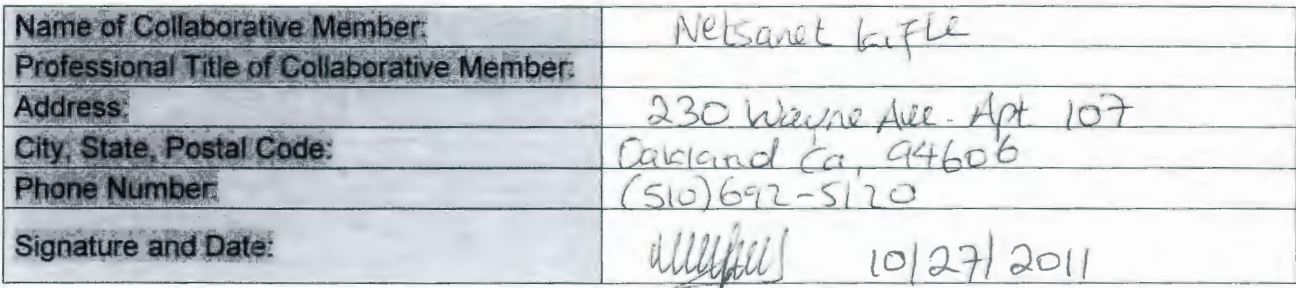 Name of Collaborative Member: Netsanet Kifle
Professional Title of Collaborative Member:
Address: 230 Wayne Ave. Apt 107
City, State, Postal Code: Oakland Ca, 94606
Phone Number: (510)692-5120
Signature and Date: 10/27/2011